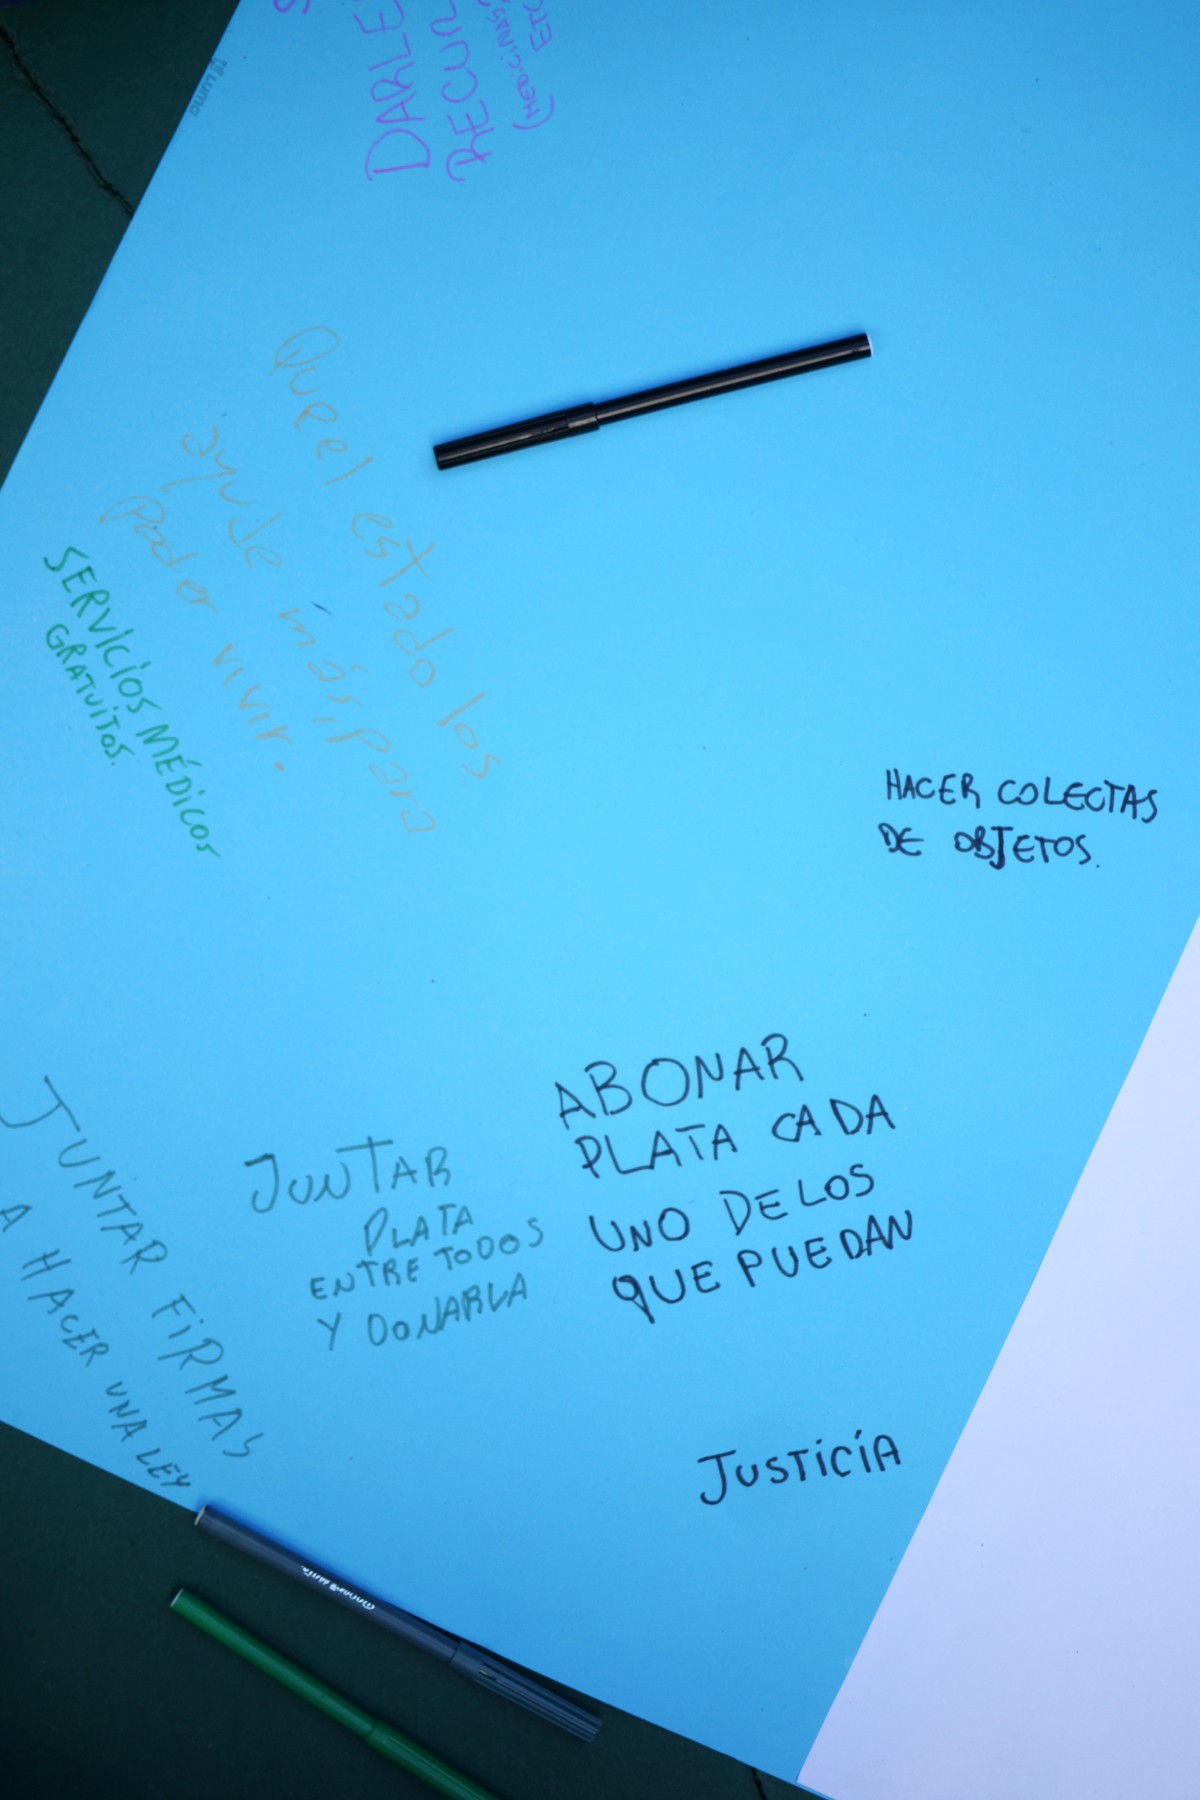 DARLE
RECUR
(MEDICINAS,
ETC
Que el estado los
ayude más, para
poder vivir.
SERVICIOS MÉDICOS
GRATUITOS.
HACER COLECTAS
DE OBJETOS.
ABONAR
PLATA CADA
UNO DE LOS
QUE PUEDAN
JUNTAR
PLATA
ENTRE TODOS
Y DONARLA
JUNTAR FIRMAS
A HACER UNA LEY
JUSTICÍA